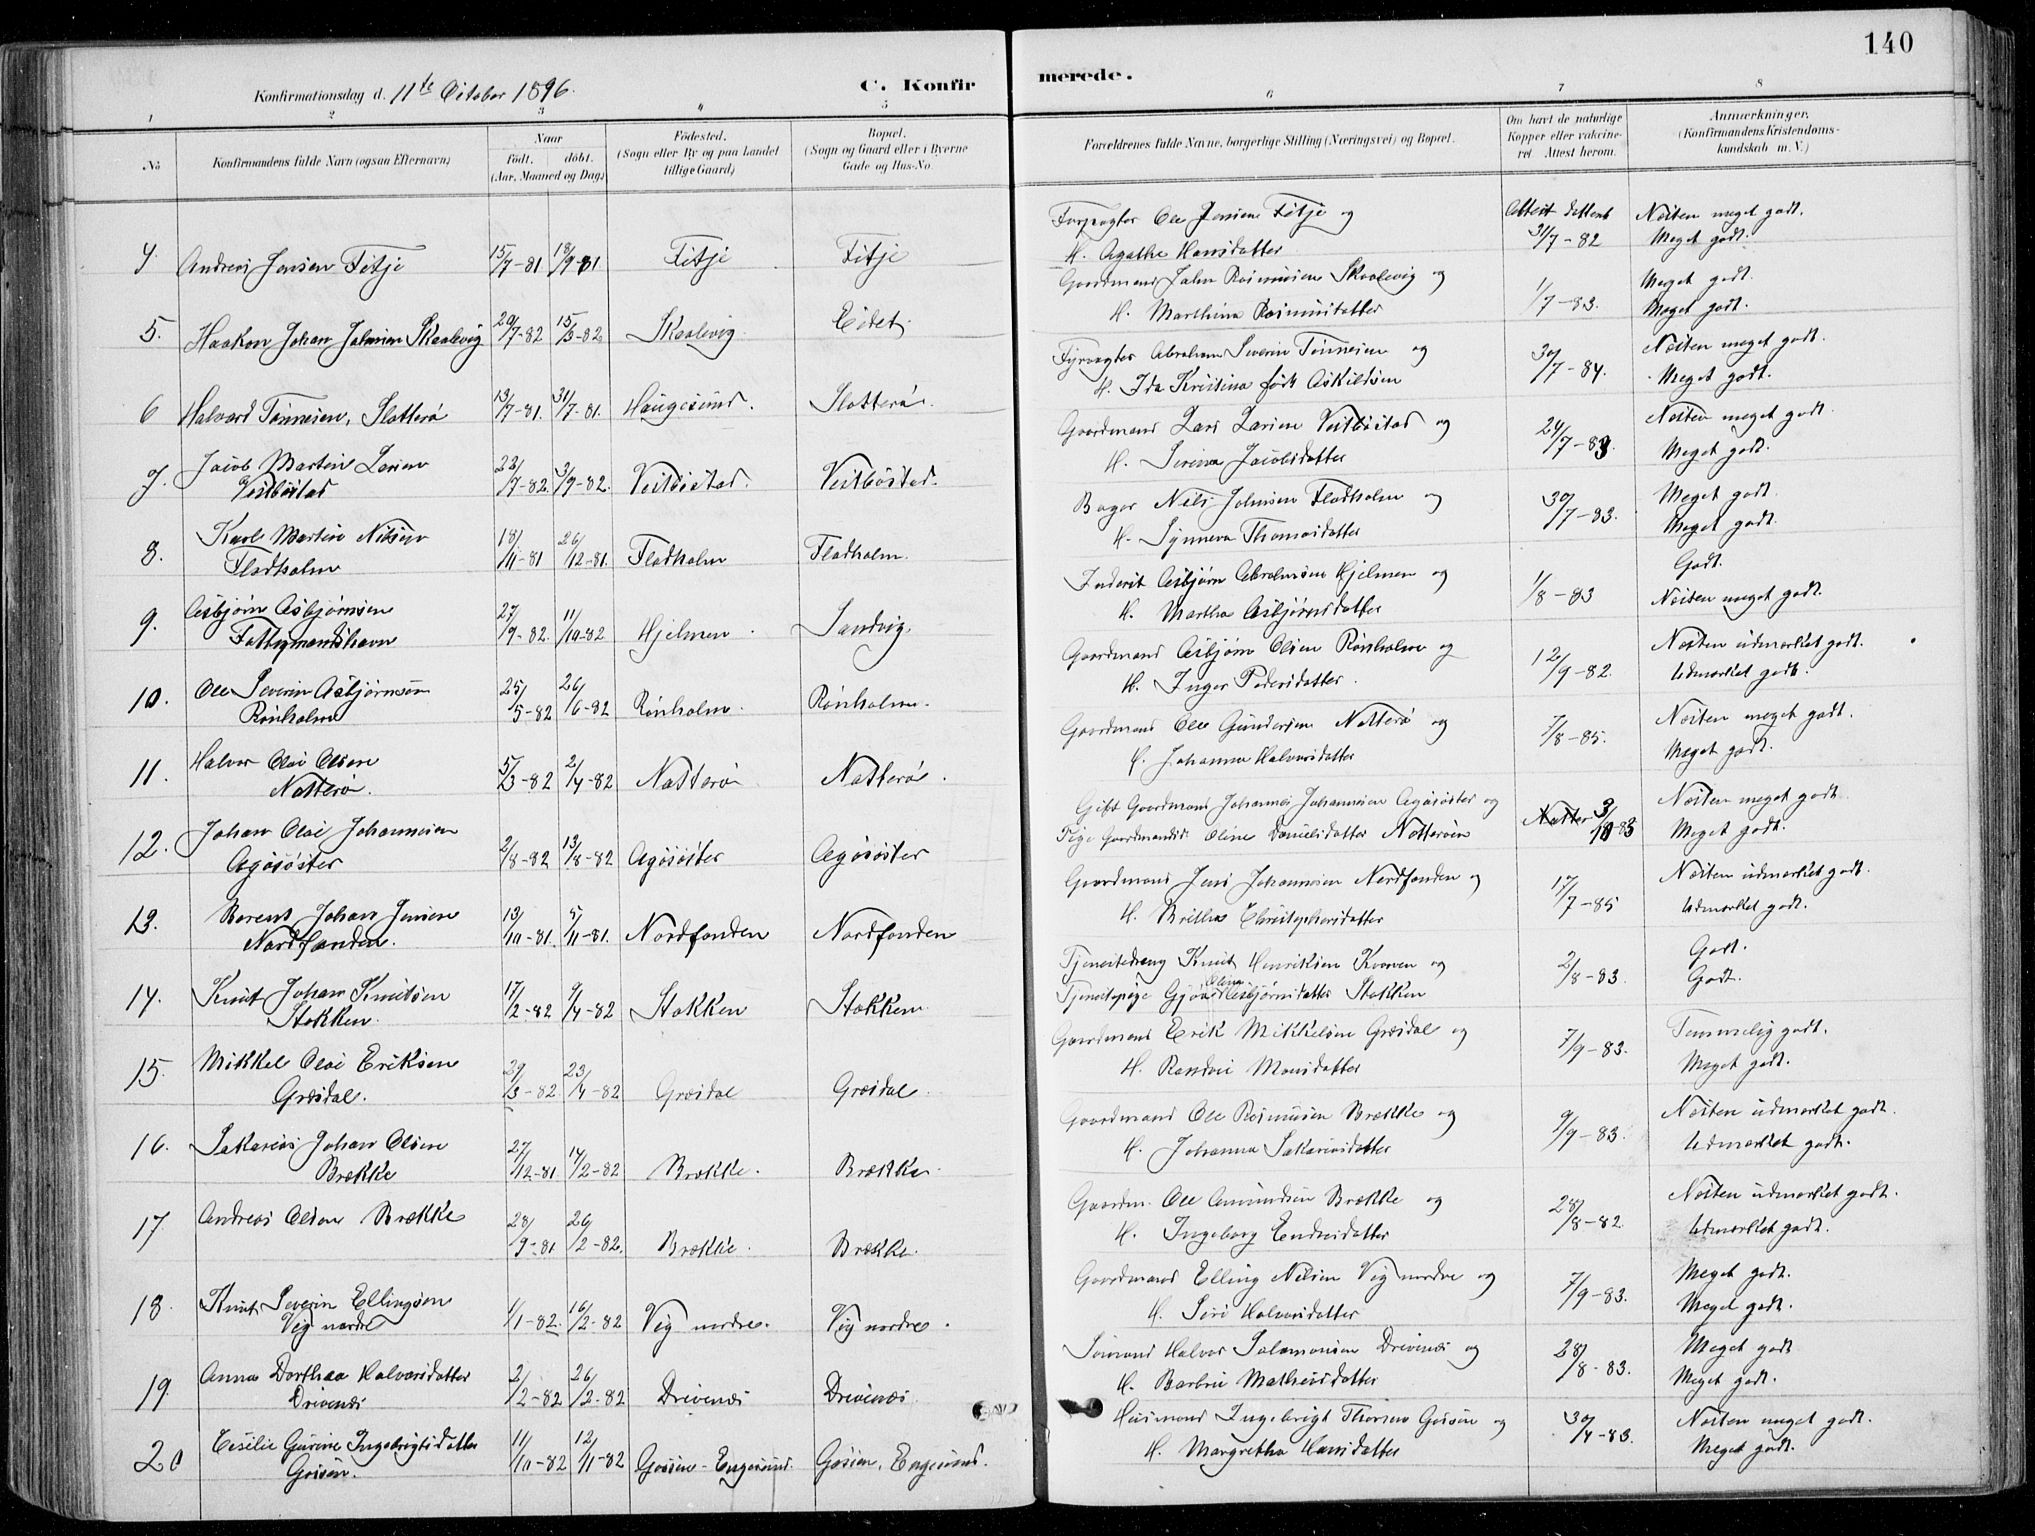 140
Konfirmationsdag d. 11te October 1896.
C. Konfirmerede.
1 2 3 4 5 6 7 8
No
Konfirmandens fulde Navn (ogsaa Efternavn)
Naar født. døbt. (Aar, Maaned og Dag.)
Fødested. (Sogn eller By og paa Landet tillige Gaard)
Bopæl. (Sogn og Gaard eller i Byerne Gade og Hus-No.
Forældrenes fulde Navne, borgerlige Stilling (Næringsvei) og Bopæl.
Om havt de naturlige Kopper eller vakcineret. Attest herom.
Anmærkninger. (Konfirmandens Kristendomskundskab m. V.)
4 Andreas Jensen Fitje 15/7-81 18/9-81 Fitje Fitje
Forpagter Ole Jensen Fitje og
H. Agathe Hansdatter
Attest datteret 31/7-82
Næsten meget godt.
Meget godt.
5. Haakon Johan Johnsen Skaalevig 20/7-82 15/3-82 Skaalevig Eidet
Gaardmand John Rasmusen Skaalevig og
H. Marthina Rasmusdatter
1/7-83.
Meget godt.
Meget godt.
6 Halvard Tønnesen, Slotterø 13/7-81. 31/7-81. Haugesund. Slotterø.
Fyrvogter Abraham Severin Tønnesen og
H. Ida Kristina født Askildsen
30/7-84.
Næsten meget godt.
Meget godt.
7. Jacob Martin Larsen
Vestbøstad 22/7-82. 3/9-82. Vestbøstad. Vestbøstad.
Gaardmand Lars Larsen Vestbøstad og
H. Serina Jacobsdatter
24/7-83.
Næsten meget godt
Meget godt.
8. Karl Martin Nilsen
Fladholm 18/11-81 26/12-81. Fladholm Fladholm.
Bager Nils Johnsen Fladholm og
H. Synneva Thomasdatter
30/7-83.
Meget godt.
Meget godt.
9. Asbjørn Asbjørnsen
Fattigmandshavn 27/9-82. 11/10-82 Hjelmen Sandvig.
Inderst Asbjørn Abrahmsen Hjelmen og
H. Martha Asbjørnsdatter
1/8-83
Godt.
Næsten meget godt.
10. Ole Severin Asbjørnsen
Rønholm 25/5-82 26/6-82 Rønholm. Rønholm.
Gaardmand Asbjørn Olsen Rønholm og
H. Inger Pedersdatter.
12/9-82.
Næsten udmærket godt.
Udmærket godt.
11. Halvor Olai Olsen
Natterø. 5/3-82 2/4-82 Natterø Natterø.
Gaardmand Ole Gundersen Natterø og
H. Johanna Halvorsdatter
7/8-85.
Næsten meget godt.
Meget godt.
12. Johan Olai Johannesen
Agøsøster 2/8-82 13/8-82 Agøsøster Agøsøster
Gift Gaardmand Johannes Johannesen Agøsøster og
Pige Gaardmandsd. Oline Danielsdatter Natterøen
3/10-83
Næsten meget godt
Meget godt.
13. Berent Johan Jensen
Nordfonden. 13/10-81. 5/11-81. Nordfonden Nordfonden
Gaardmand Jens Johannesen Nordfonden og
H. Britha Christophersdatter
17/7-85
Næsten udmærket godt.
Udmærket godt.
14. Knut Johan Knutsen
Stokken. 17/2-82 9/4-82 Stokken Stokken
Tjenestedreng Knut Henriksen Kvarven og
Tjenestepige Gjøa Olina Asbjørnsdatter Stokken
2/8-83.
Godt.
Godt.
15. Mikkel Olai Eriksen
Græsdal. 29/3-82. 23/4-82 Græsdal Græsdal.
Gaardmand Erik Mikkelsen Græsdal og
H. Randvei Monsdatter
7/9-83.
Temmelig godt.
Meget godt.
16. Sakarias Johan Olsen
Brække 27/12-81 14/2-82 Brække. Brække.
Gaardmand Ole Rasmusen Brække og
H. Johanna Sakariasdatter
9/9-83.
Næsten udmærket godt.
Udmærket godt.
17. Andreas Olsen Brække 28/9-81 26/2-82. Brække. Brække.
Gaardm. Ole Amundsen Brække og
H. Ingeborg Endresdatter
28/8-82.
Næsten udmærket godt.
Udmærket godt.
18. Knut Severin Ellingsen
Vig nordre 1/1-82. 16/2-82 Vig nordre. Vig nordre.
Gaardmand Elling Nilsen Vig nordre og
H. Siri Halvorsdatter
7/9-83.
Meget godt.
Meget godt.
19. Anna Dorthea Halvorsdatter
Drivenæs 2/2-82 26/2-82 Drivenæs Drivenæs
Sømand Halvor Salamonsen Drivenæs og
H. Barbru Matheisdatter
28/8-83.
Meget godt
Meget godt.
20 Cesilie Gurine Ingebrigtsdatter
Gåsøen. 11/10-82 12/11-82 Gaasøen-Engesund. Gåsøen, Engesund.
Husmand Ingebrigt Thorsen Gåsøen og
H. Margretha Hansdatter
30/4-83.
Næsten meget godt.
Meget godt.